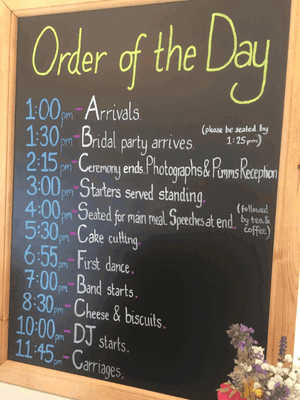 Order of the Day
1:00pm - Arrivals.
1:30pm - Bridal party arrives. (please be seated by 1:25pm)
2:15pm - Ceremony ends. Photographs & Pimms Reception
3:00pm - Starters served standing.
4:00pm - Seated for main meal. Speeches at end. (followed by tea & coffee)
5:30pm - Cake cutting.
6:55pm - First dance.
7:00pm - Band starts.
8:30pm - Cheese & biscuits.
10:00pm - DJ starts.
11:45pm - Carriages.